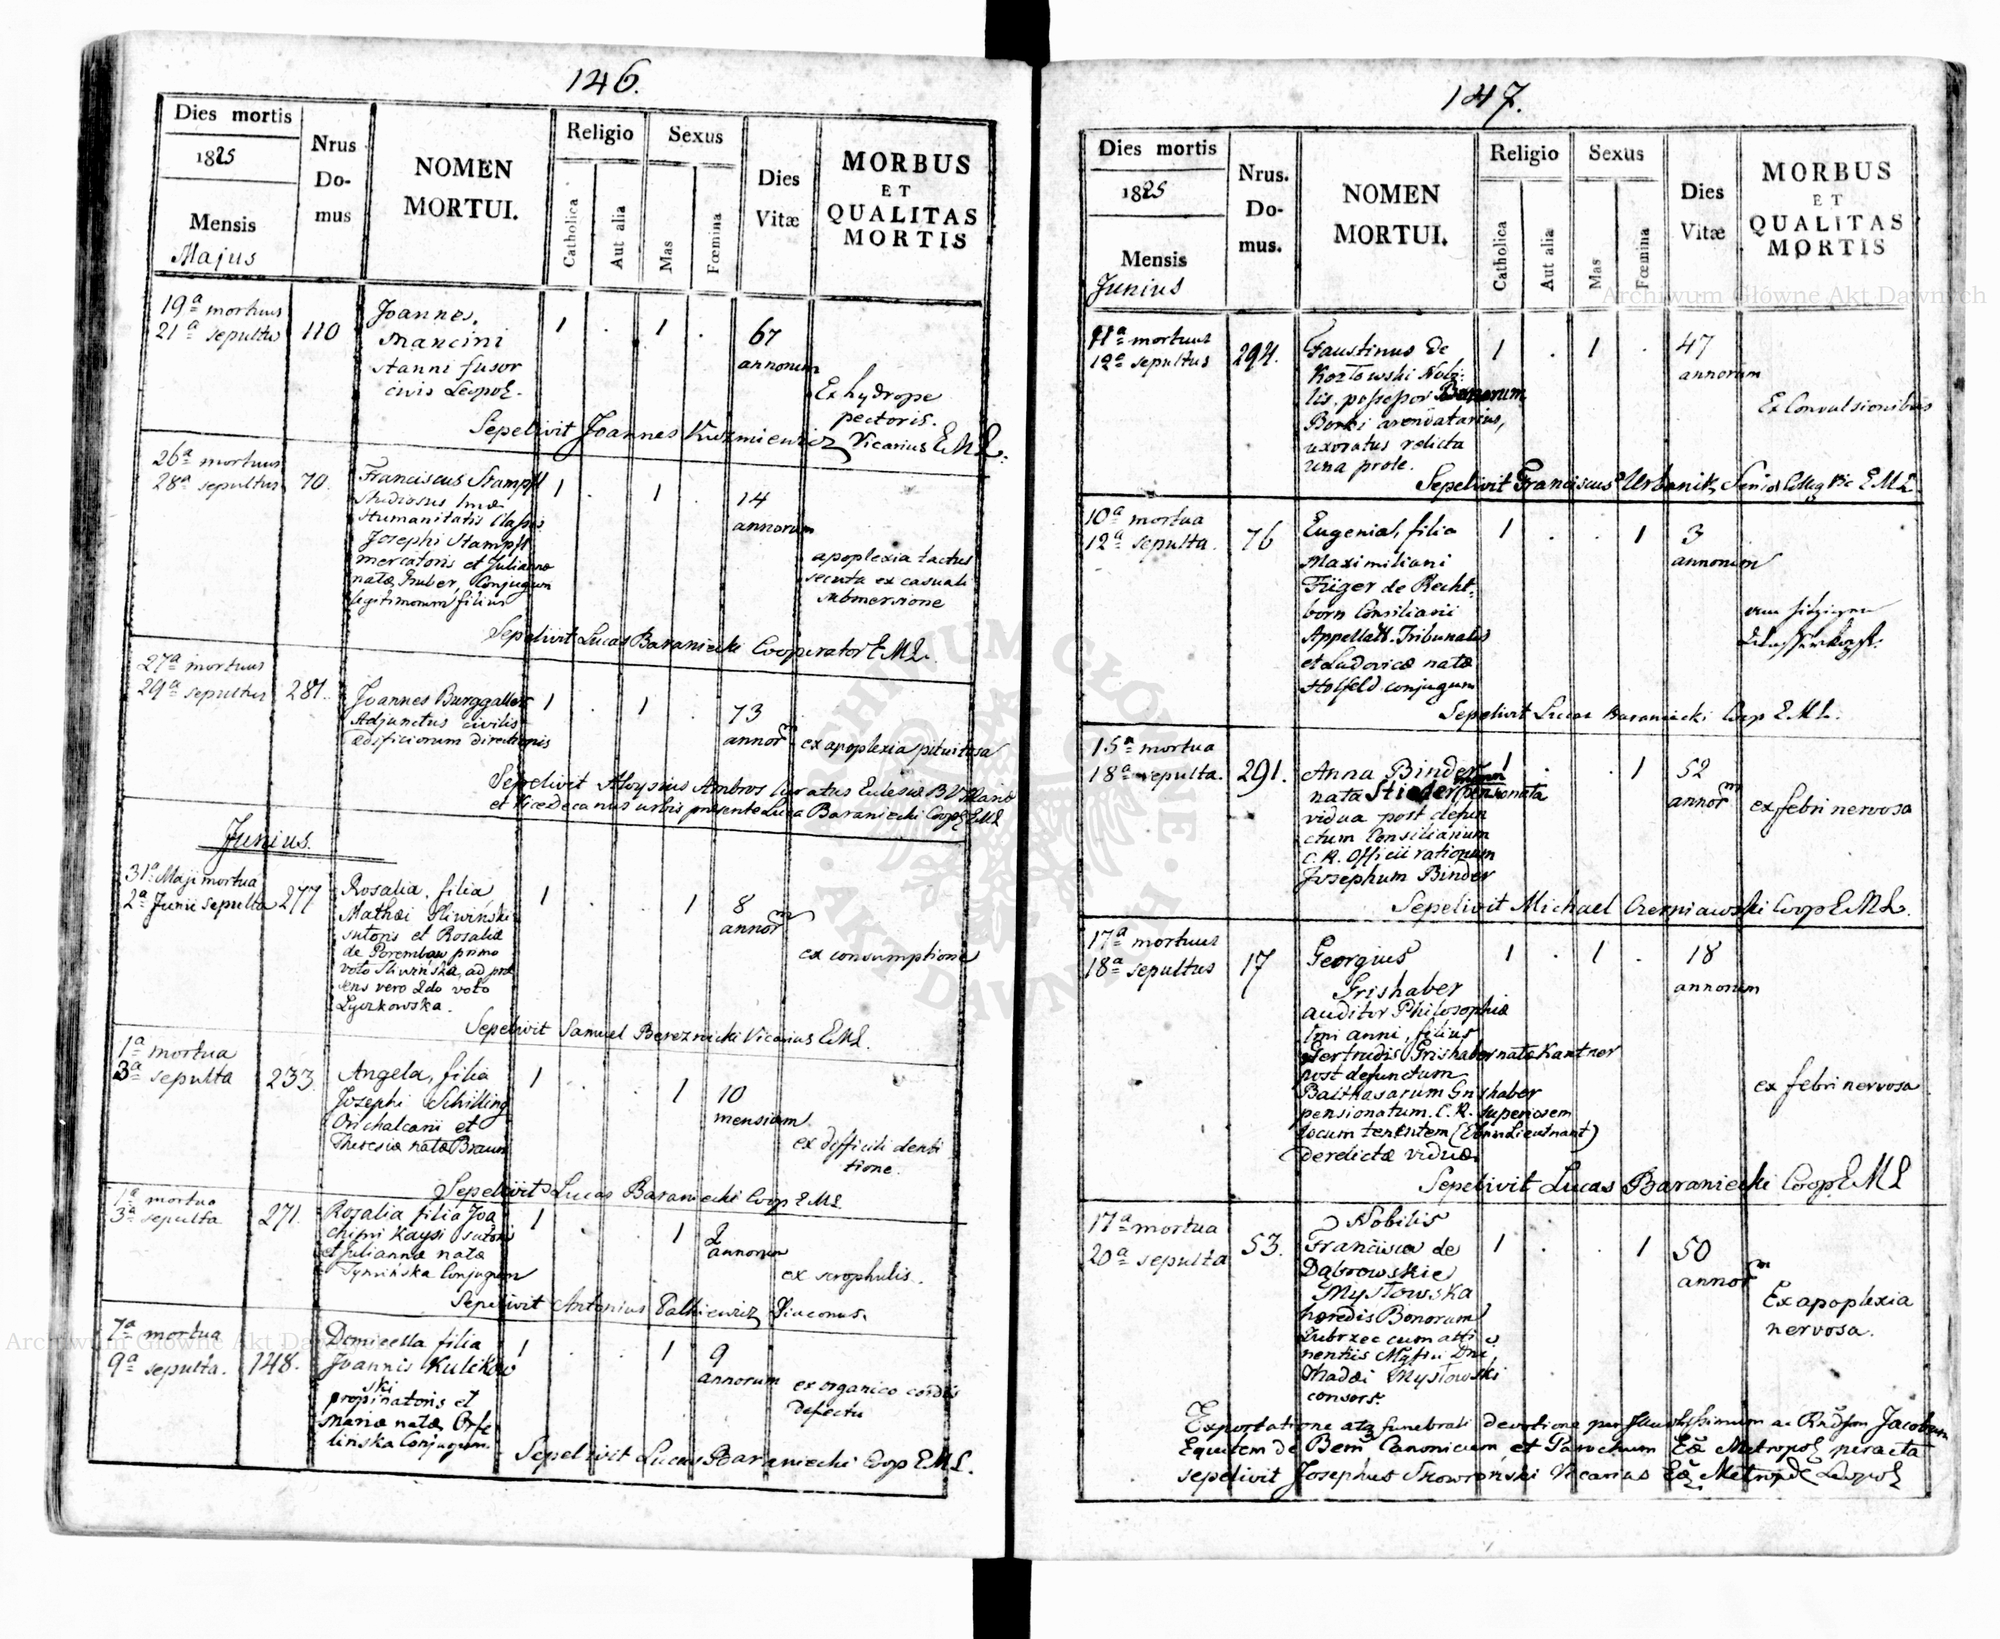 146.
Dies mortis
1825
Mensis
Majus
Nrus
Do-
mus
NOMEN
MORTUI.
Religio
Catholica
Aut alia
Sexus
Mas
Fœmina
Dies
Vitæ
MORBUS
ET
QUALITAS
MORTIS
19ª mortuus
21ª sepultus
110
Joannes
Mancini
stanni fusor
civis Leopol.
1 . 1 .
67
annorum
Ex hydrope
pectoris.
Sepelivit Joannes Kuzmiewicz Vicarius E.M.L.
26ª mortuus
28ª sepultus
70.
Franciscus Stampfl
studiosus Imæ
Humanitatis Classis
Josephi Stampfl
mercatoris et Julianæ
natæ Gruber, Conjugum
legitimorum filius
1 . 1 .
14
annorum
apoplexia tactus
secuta ex casuali
submersione
Sepelivit Lucas Baraniecki Cooperator E.M.L.
27ª mortuus
29ª sepultus
281.
Joannes Burggaller
Adjunctus civilis
ædificiorum directionis
1 . 1 .
73
annorm
ex apoplexia pituitosa
Sepelivit Aloysius Ambros Curatus Eclesiæ B.V. Mariæ
et Vicedecanus urbis presente Luca Baraniecki Coop. E.M.L.
Junius.
31ª Maji mortua
2ª Junii sepulta
277
Rosalia, filia
Mathæi Sliwiński
sutoris et Rosaliæ
de Porembow primo
voto Sliwińska, ad præ
sens vero 2do voto
Lyczkowska.
1 . . 1
8
annorm
ex consumptione
Sepelivit Samuel Bereznicki Vicarius E.M.L.
1ª mortua
3ª sepulta
233.
Angela, filia
Jozephi Schilling
Orichalcarii et
Theresiæ natæ Braun
1 . . 1
10
mensium
ex difficili denti
tione.
Sepelivit Lucas Baraniecki Coop E.M.L.
1ª mortua
3ª sepulta
271.
Rozalia filia Joa
chimi Kaysi sutoris
et Juliannæ natæ
Tymińska Conjugum
1 . . 1
2
annorum
ex scrophulis.
Sepelivit Antonius Falkiewicz Diaconus.
7ª mortua
9ª sepulta.
148.
Domicella filia
Joannis Kulikow
ski
propinatoris et
Mariæ natæ Orfe
lińska Conjugum.
1 . . 1
9
annorum
ex organico cordis
defectu
Sepelivit Lucas Baraniecki Coop E.M.L.
147.
Dies mortis
1825
Mensis
Junius
Nrus.
Do-
mus.
NOMEN
MORTUI.
Religio
Catholica
Aut alia
Sexus
Mas
Fœmina
Dies
Vitæ
MORBUS
ET
QUALITAS
MORTIS
11ª mortuus
12ª sepultus
294.
Faustinus de
Kozłowski Nobi-
lis, possessor Bonorum
Borki arendatarius,
uxoratus relicta
una prole.
1 . 1 .
47
annorum
Ex Convulsionibus
Sepelivit Franciscus Urbanik, Senior Colleg Vic E.M.L.
10ª mortua
12ª sepulta.
76
Eugenia, filia
Maximiliani
Füger de Recht-
born Consiliarii
Appellatt. Tribunalis
et Ludovicæ natæ
Holfeld conjugum
1 . . 1
3
annorum
vom hitzigen
Wasserkopfe.
Sepelivit Lucas Baraniecki Coop E.M.L.
15ª mortua
18ª sepulta.
291.
Anna Binder
nata Stieder pensionata
vidua post defun
ctum Consiliarium
C.R. Officii rationum
Josephum Binder
1 . . 1
52
annorm
ex febri nervosa
Sepelivit Michael Czerniawski Coop E.M.L.
17ª mortuus
18ª sepultus
17
Georgius
Grishaber
auditor Philosophiæ
Imi anni, filius
Gertrudis Grishaber natæ Kantner
post defunctum
Balthasarum Grishaber
pensionatum C.R. superiorem
locum tenentem (Oberlieutnant)
derelictæ viduæ.
1 . 1 .
18
annorum
ex febri nervosa
Sepelivit Lucas Baraniecki Coop. E.M.L
17ª mortua
20ª sepulta
53.
Nobilis
Francisca de
Dąbrowskie
Mysłowska
hæredis Bonorum
Zubrzec cum atti
nentiis Mgfici Dni
Thadæi Mysłowski
consors.
1 . . 1
50
annorm
Ex apoplexia
nervosa.
Exportatione atq funebrali devotione per Jacobum
Equitem de Bem Canonicum et Parochum Eæ Metropol peracta
sepelivit Josephus Skowroński Vicarius Eæ Metropol Leopol
Archiwum Główne Akt Dawnych
Archiwum Główne Akt Dawnych
ARCHIWUM GŁÓWNE · AKT DAWNYCH ·